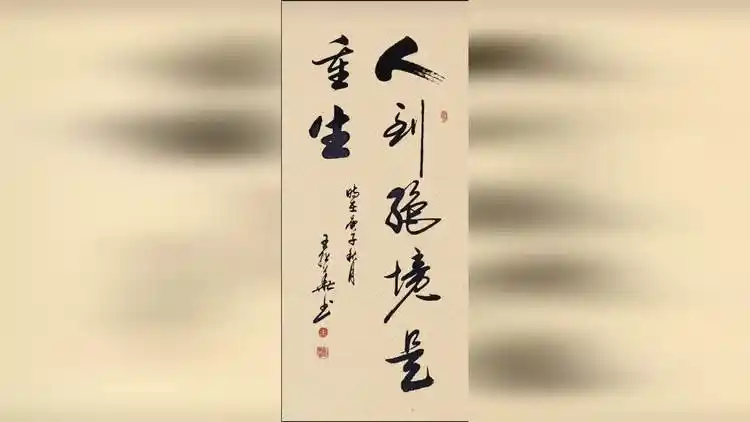 人到絕境是
重生
時在庚子秋月